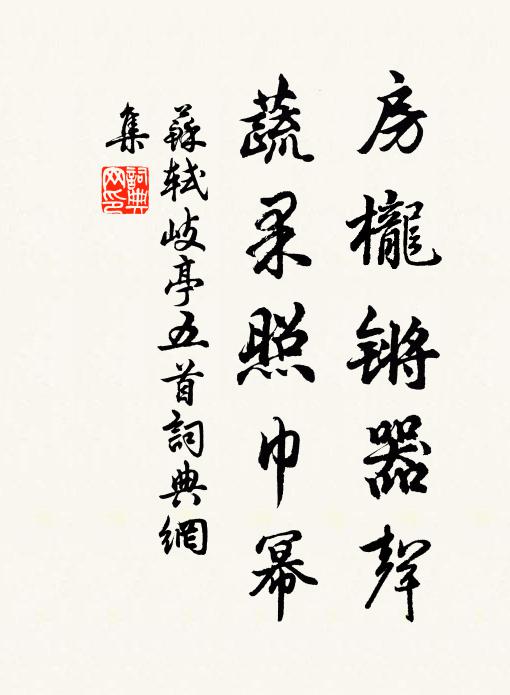 房櫳鏘器聲
蔬果照巾冪
蘇軾岐亭五首詞典網
集
詞典
网印